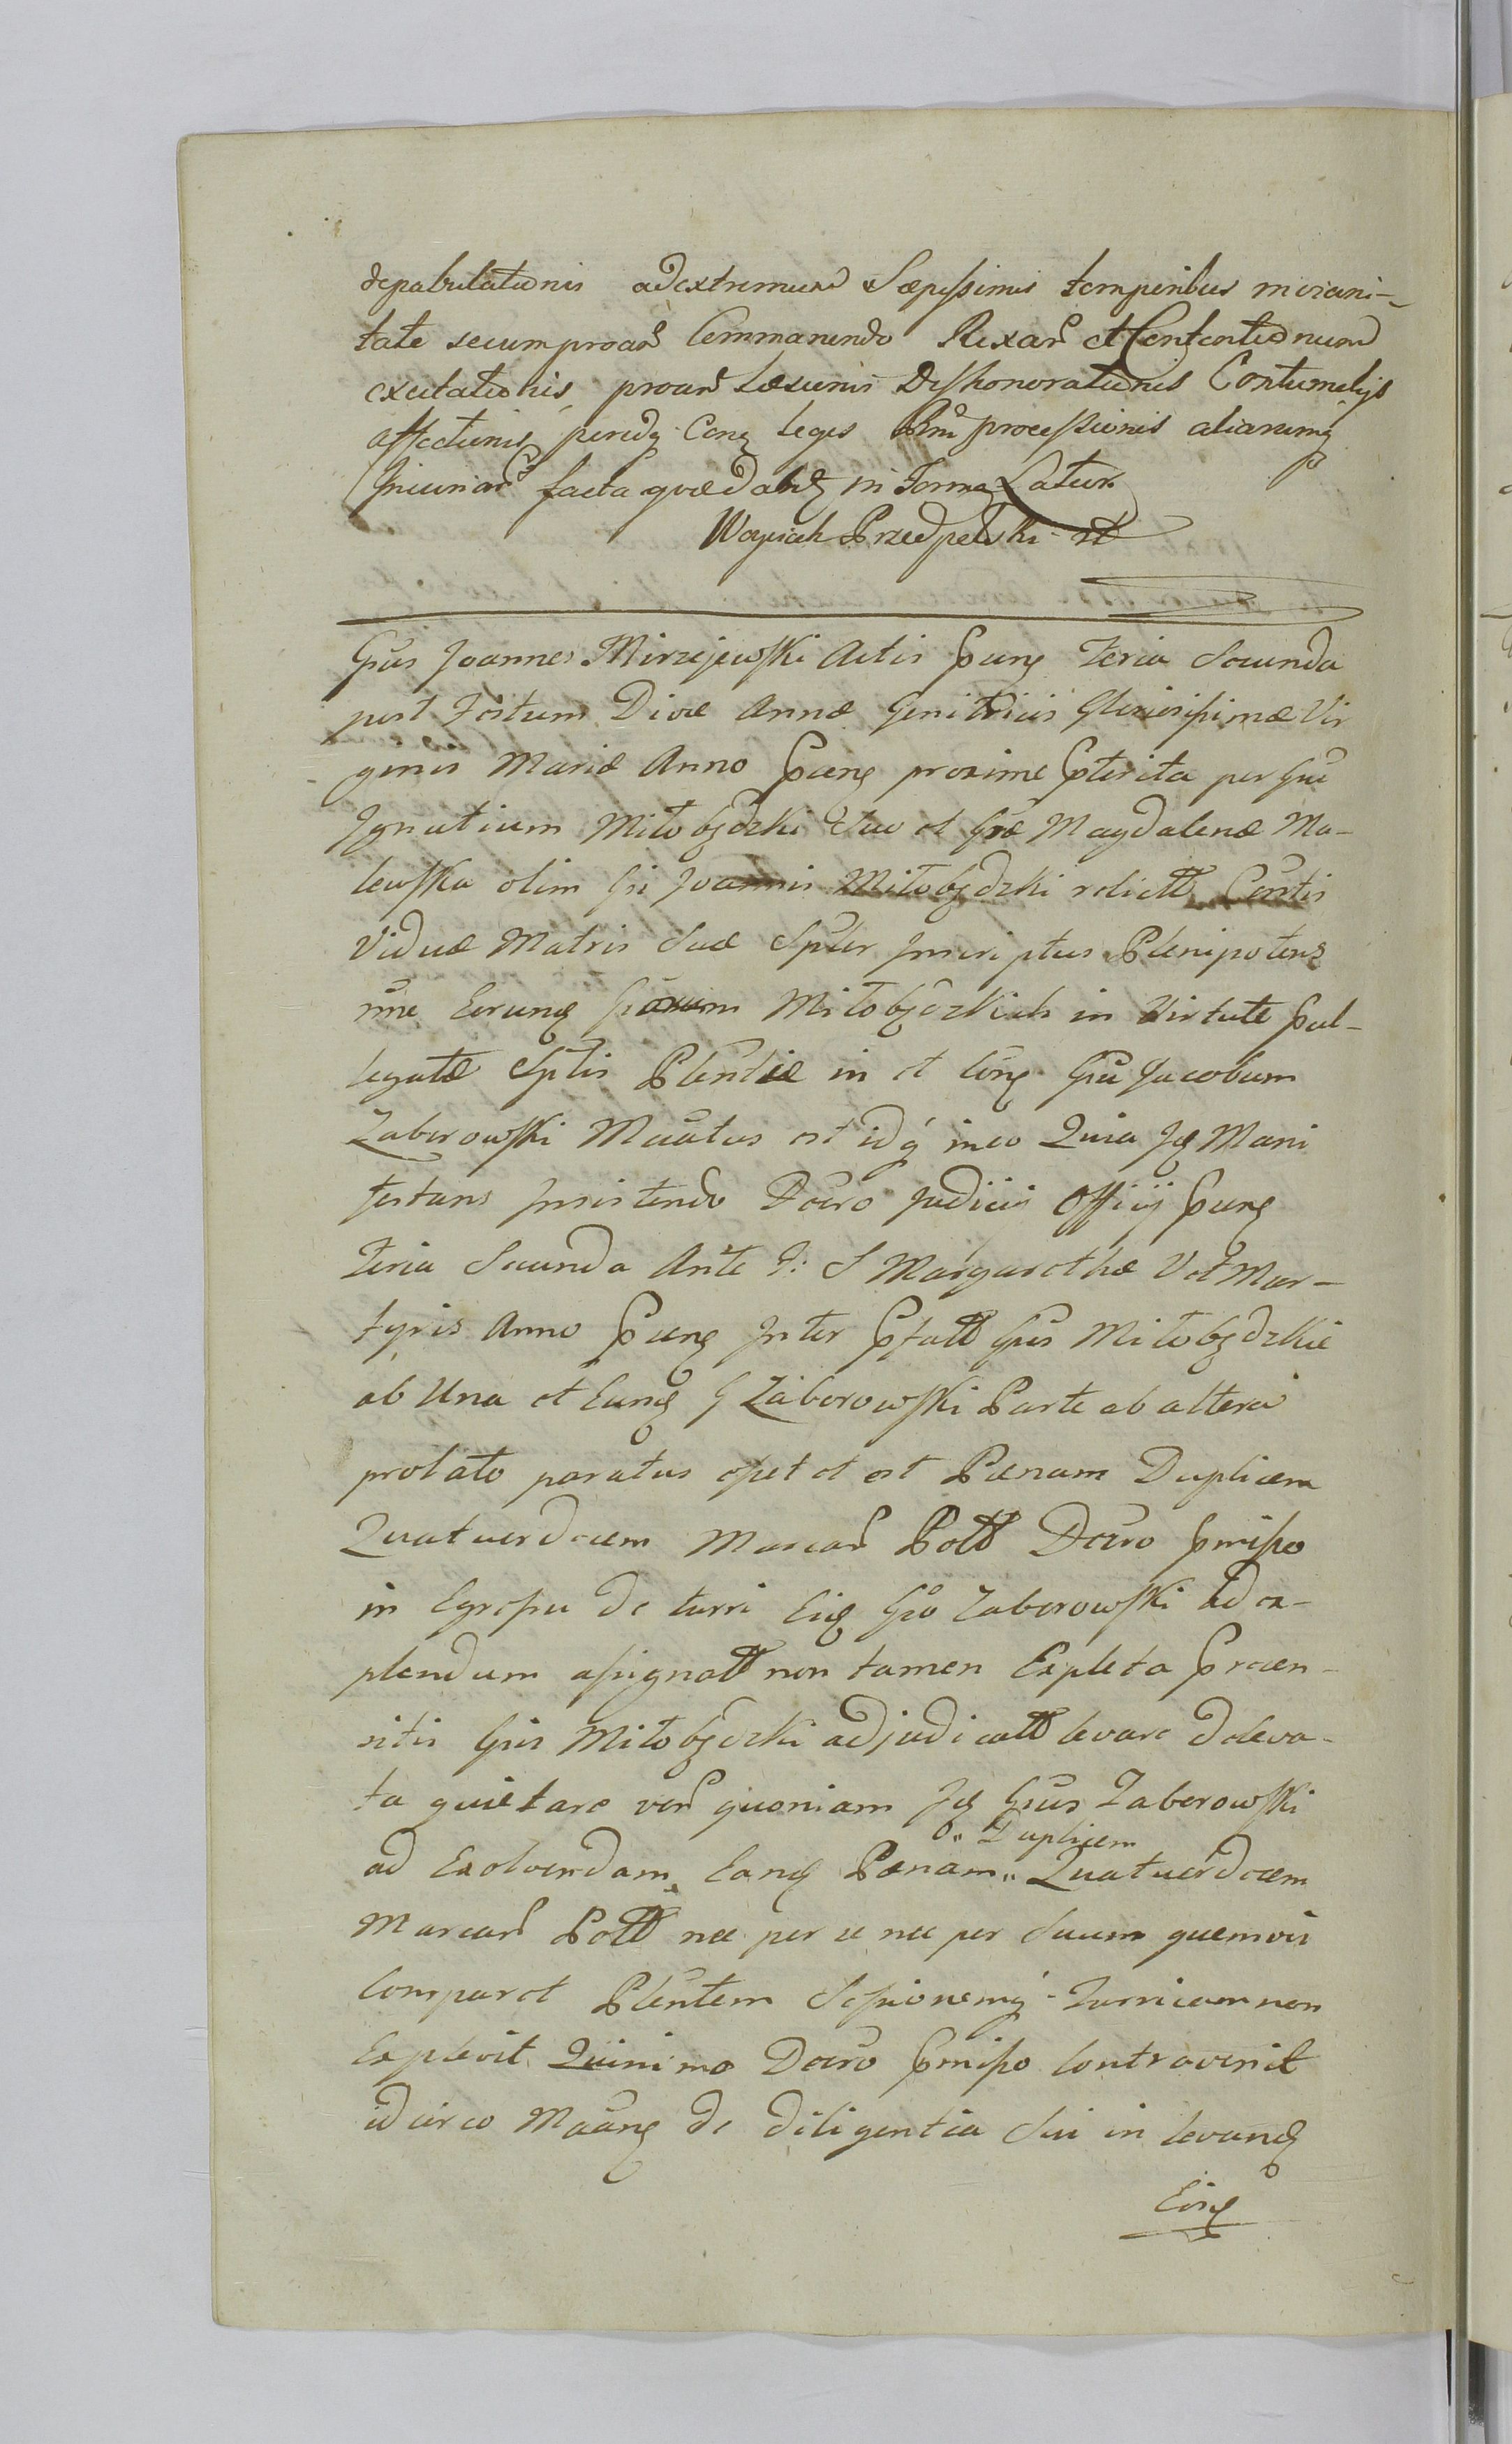 depabulationis adextremum Sæpissimis temporibus inviciani-
tate secum proar Commanendo Rixar et Contentionum
excitationis, proar Læsionis Dishonorationis Contumelijs
affectionis, periidq Conq leges processionis aliarumq
Iniuriar facta quæ dabitq in Forma Latior.
Woyciech Przedpelski
Gsus Joannes Mirzejewski Actis pnng Feria Secunda
post Festum Divæ Annæ Genitricis Gloriosissimæ Vir
ginis Mariæ Anno pnng proxime pterita per Gsu
Ignatium Miłobędzki Suo et Gsæ Magdalenæ Ma-
lewska olim Gsi Joannis Miłobędzki relictt Consortis
Viduæ Matris Suæ Spaler Inscriptus Plenipotens
nne Eorunq Gsorum Miłobędzkich in Virtute pal-
legatæ Sptis Plentiæ in et Conq Gsu Jacobum
Zaborowski Maatus est idq ineo Quia Iq Mani
festans Insistendo Dcero Judicii Officij pnng
Feria Secunda Ante F: S Margarethæ V et Mar-
tyris Anno pnng Inter pfatt Gsus Miłobędzkie
ab Una et Eunq G Zaborowski Parte ab altera
prolato paratus esset et est Pænam Duplicem
Quatuordecem Marcar Poll Dcero pmisso
in Egressu de turri Eiq Gso Zaborowski ad ex-
plendum assignatt non tamen Expleta præn-
sitis Gsis Miłobędzki adjudicatt levare Deleva-
ta quietare ver quoniam Iq Gsus Zaborowski
o" Duplicem
ad Exolvendam Eanq Pænam " Quatuordecem
Marcar Poll nec per se nec per Suum quemvis
Comparet Plentem Sessionemq Turricem non
Explevit Quinimo Dcero pmisso Contravenit
idcirco Maanq de diligentia Sui in levanq
Eorq